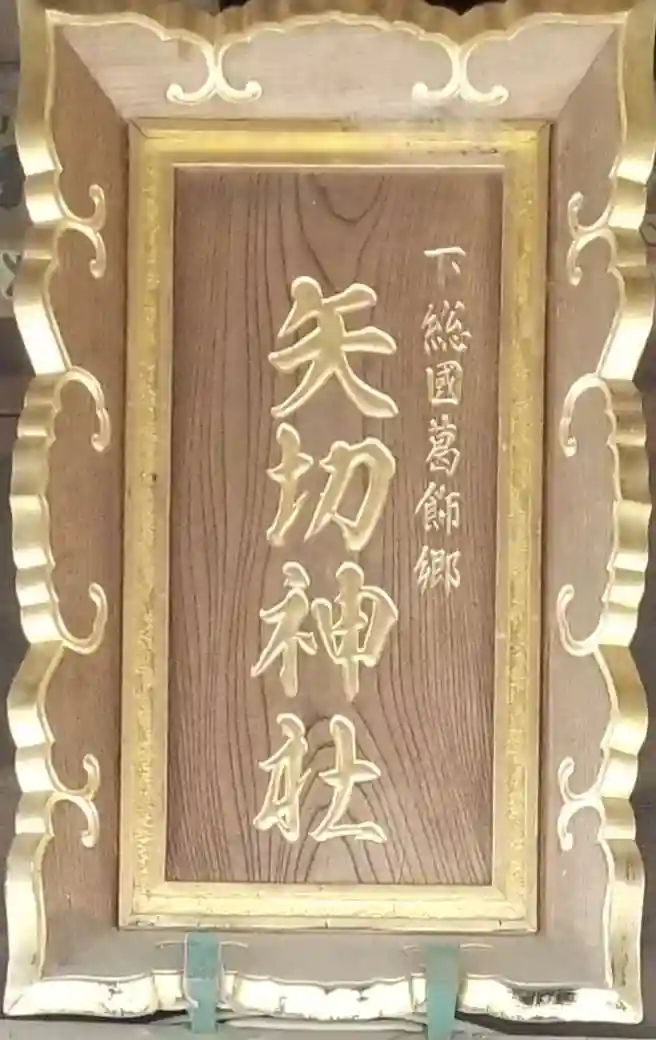 下総國葛飾郷
矢切神社